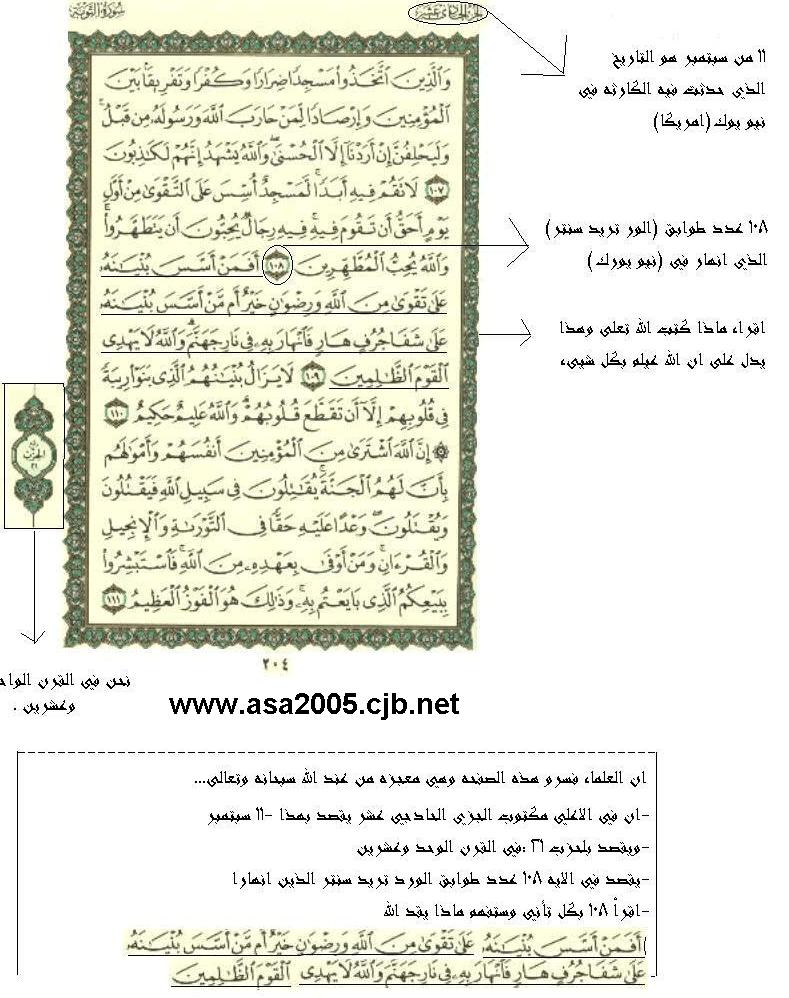 سورة التوبة
الجزء الحادي عشر
١١ من سبتمبر هو التاريخ
الذي حدثت فيه الكارثه في
نيو يوك (امريكا)
وَالَّذِينَ اتَّخَذُوا مَسْجِدًا ضِرَارًا وَكُفْرًا وَتَفْرِيقًا بَيْنَ
الْمُؤْمِنِينَ وَإِرْصَادًا لِّمَنْ حَارَبَ اللَّهَ وَرَسُولَهُ مِن قَبْلُ
وَلَيَحْلِفُنَّ إِنْ أَرَدْنَا إِلَّا الْحُسْنَىٰ وَاللَّهُ يَشْهَدُ إِنَّهُمْ لَكَاذِبُونَ
١٠٧ لَا تَقُمْ فِيهِ أَبَدًا لَّمَسْجِدٌ أُسِّسَ عَلَى التَّقْوَىٰ مِنْ أَوَّلِ
يَوْمٍ أَحَقُّ أَن تَقُومَ فِيهِ فِيهِ رِجَالٌ يُحِبُّونَ أَن يَتَطَهَّرُوا
وَاللَّهُ يُحِبُّ الْمُطَّهِّرِينَ ١٠٨ أَفَمَنْ أَسَّسَ بُنْيَانَهُ
عَلَىٰ تَقْوَىٰ مِنَ اللَّهِ وَرِضْوَانٍ خَيْرٌ أَم مَّنْ أَسَّسَ بُنْيَانَهُ
عَلَىٰ شَفَا جُرُفٍ هَارٍ فَانْهَارَ بِهِ فِي نَارِ جَهَنَّمَ وَاللَّهُ لَا يَهْدِي
الْقَوْمَ الظَّالِمِينَ ١٠٩ لَا يَزَالُ بُنْيَانُهُمُ الَّذِي بَنَوْا رِيبَةً
فِي قُلُوبِهِمْ إِلَّا أَن تَقَطَّعَ قُلُوبُهُمْ وَاللَّهُ عَلِيمٌ حَكِيمٌ ١١٠
۞ إِنَّ اللَّهَ اشْتَرَىٰ مِنَ الْمُؤْمِنِينَ أَنفُسَهُمْ وَأَمْوَالَهُم
بِأَنَّ لَهُمُ الْجَنَّةَ يُقَاتِلُونَ فِي سَبِيلِ اللَّهِ فَيَقْتُلُونَ
وَيُقْتَلُونَ وَعْدًا عَلَيْهِ حَقًّا فِي التَّوْرَاةِ وَالْإِنجِيلِ
وَالْقُرْآنِ وَمَنْ أَوْفَىٰ بِعَهْدِهِ مِنَ اللَّهِ فَاسْتَبْشِرُوا
بِبَيْعِكُمُ الَّذِي بَايَعْتُم بِهِ وَذَٰلِكَ هُوَ الْفَوْزُ الْعَظِيمُ ١١١
٢٠٤
١٠٨ عدد طوابق (الور تريد سنتر)
الذي انهار في (نيو يورك)
اقراء ماذا كتب الله تعلى وهذا
يدل على ان الله عيلم بكل شيىء
الحزب
٢١
نحن في القرن الواح
وعشرين .
www.asa2005.cjb.net
ان العلماء فسرو هذه الصفحه وهي معجزه من عند الله سبحانه وتعالى...
-ان في الاعلى مكتوب الجزي الحادجي عشر يقصد بهذا -١١ سبتمبر
-ويقصد بلحزب ٢١ :في القرن الوحد وعشرين
-يقصد في الايه ١٠٨ عدد طوابق الورد تريد سنتر الذين انهارا
-اقرأ ١٠٨ بكل تأني وستفهم ماذا يقد الله
أَفَمَنْ أَسَّسَ بُنْيَانَهُ عَلَىٰ تَقْوَىٰ مِنَ اللَّهِ وَرِضْوَانٍ خَيْرٌ أَم مَّنْ أَسَّسَ بُنْيَانَهُ
عَلَىٰ شَفَا جُرُفٍ هَارٍ فَانْهَارَ بِهِ فِي نَارِ جَهَنَّمَ وَاللَّهُ لَا يَهْدِي الْقَوْمَ الظَّالِمِينَ